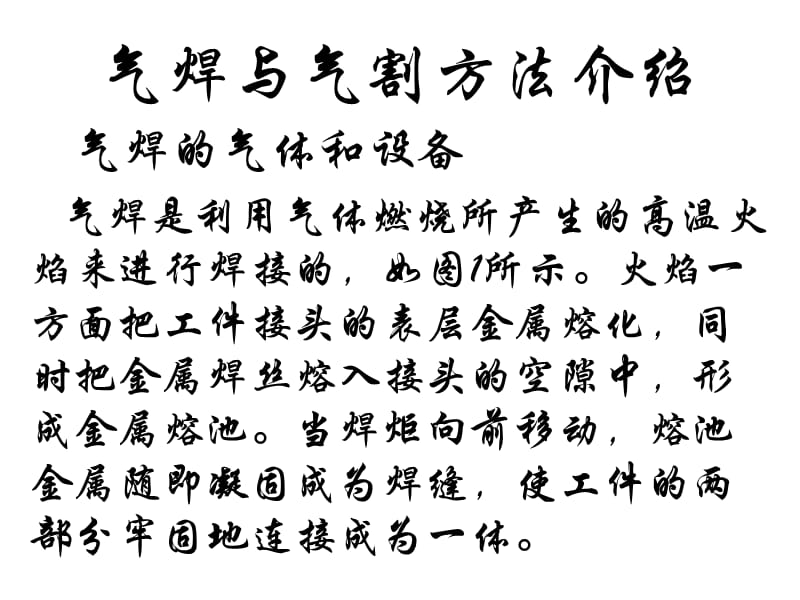 气焊与气割方法介绍
气焊的气体和设备
气焊是利用气体燃烧所产生的高温火
焰来进行焊接的，如图1所示。火焰一
方面把工件接头的表层金属熔化，同
时把金属焊丝熔入接头的空隙中，形
成金属熔池。当焊炬向前移动，熔池
金属随即凝固成为焊缝，使工件的两
部分牢固地连接成为一体。